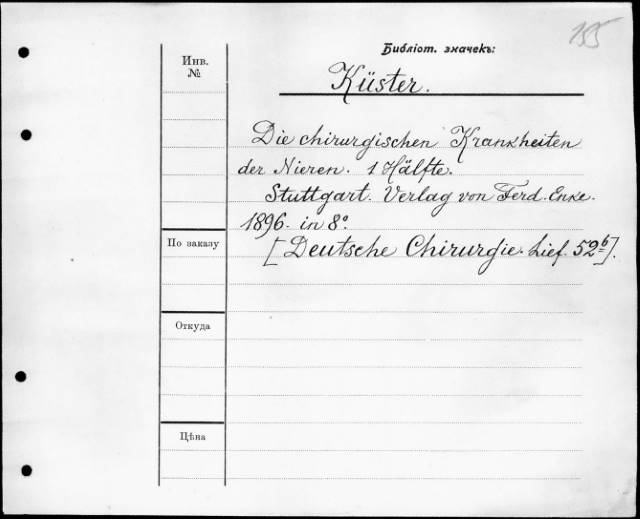 155
Библіот. значекъ:
Инв.
№
Küster.
Die chirurgischen Krankheiten
der Nieren. 1 Hälfte.
Stuttgart. Verlag von Ferd. Enke.
1896. in 8°.
По заказу
[Deutsche Chirurgie. Lief. 52ᵇ].
Откуда
Цѣна